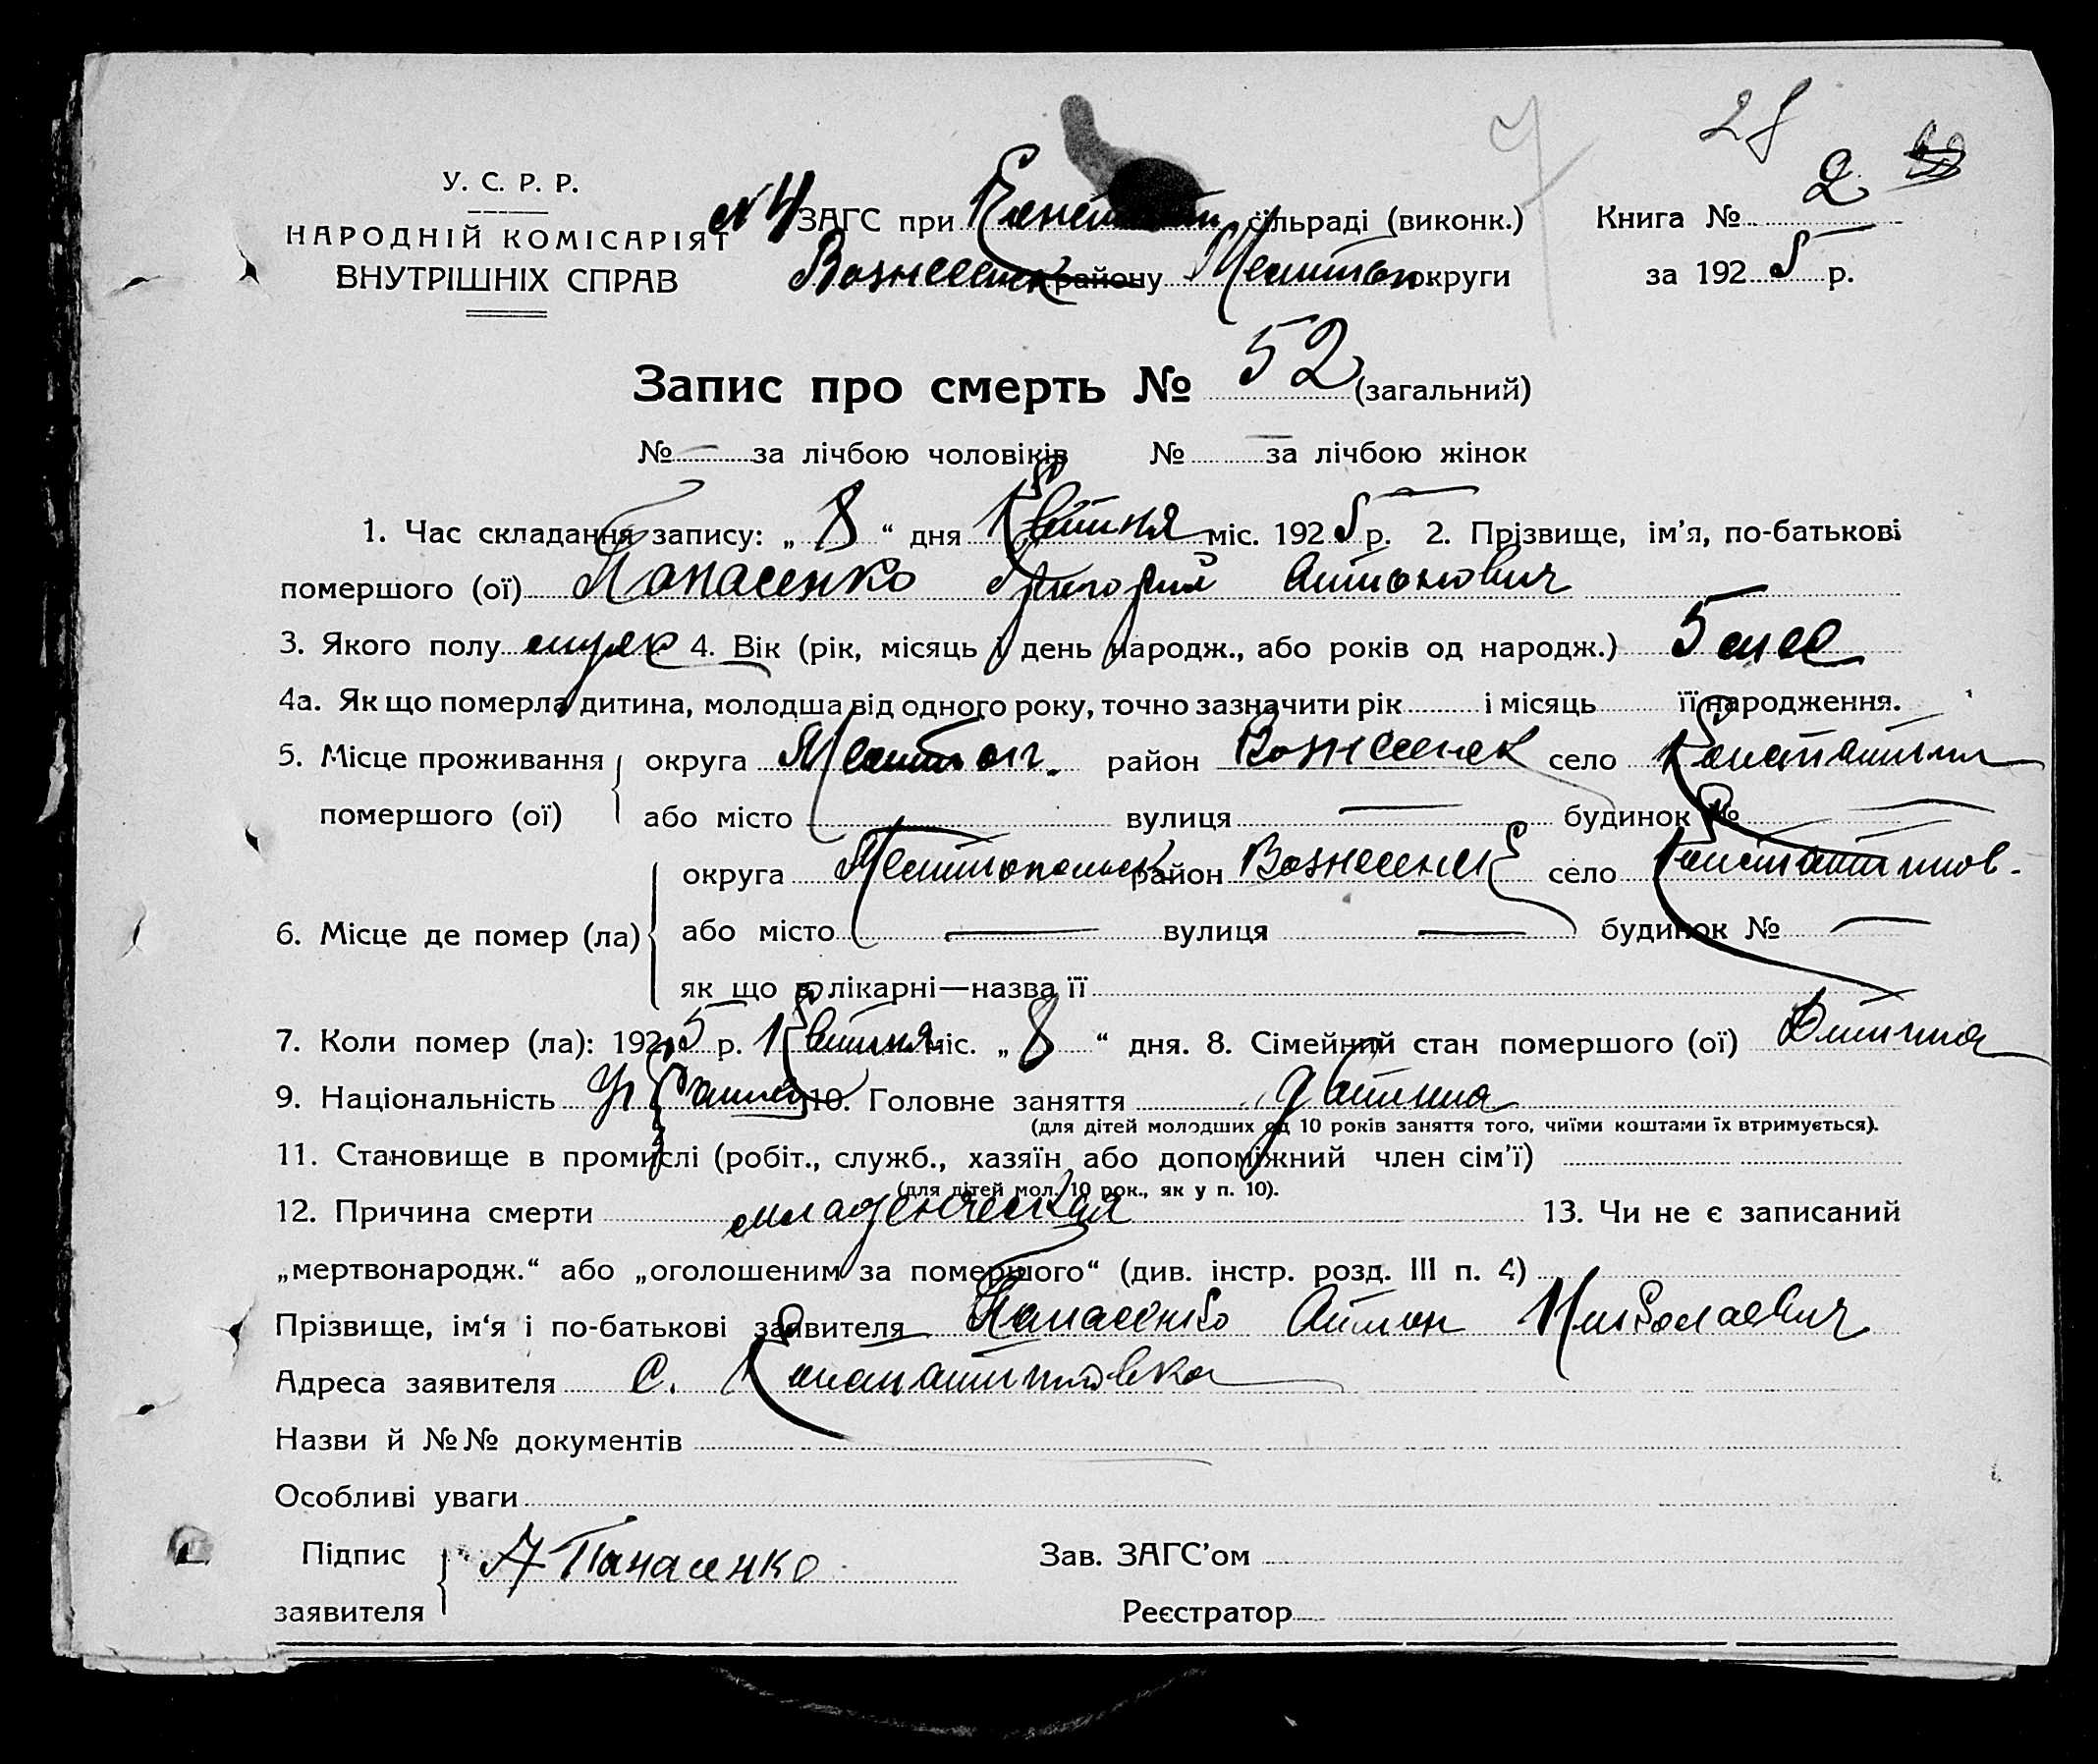 28
У. С. Р. Р.
НАРОДНІЙ КОМІСАРІЯТ
ВНУТРІШНІХ СПРАВ
№ 4 ЗАГС при сільраді (виконк.) Книга № 2
Вознесенск району Мелитоп округи за 1925 р.
Запис про смерть № 52 (загальний)
№ — за лічбою чоловіків № — за лічбою жінок
1. Час складання запису: „ 8 “ дня Квітня міс. 1925 р. 2. Прізвище, ім’я, по-батькові
помершого (ої) Панасенко Григорий Антонович
3. Якого полу муж 4. Вік (рік, місяць і день народж., або років од народж.) 5 мес
4а. Як що померла дитина, молодша від одного року, точно зазначити рік і місяць її народження.
5. Місце проживання округа Мелитоп. район Вознесенск село
помершого (ої) або місто вулиця — будинок № —
округа Мелитопольск район Вознесенск село Константинов-
6. Місце де помер (ла) або місто — вулиця — будинок № —
як що в лікарні—назва її
7. Коли помер (ла): 1925 р. Квітня міс. „ 8 “ дня. 8. Сімейний стан помершого (ої) Дитина
9. Національність 10. Головне заняття Дитина
(для дітей молодших од 10 років заняття того, чиїми коштами їх втримується).
11. Становище в промислі (робіт., служб., хазяїн або допоміжний член сім’ї)
(для дітей мол. 10 рок., як у п. 10).
12. Причина смерти младенческая 13. Чи не є записаний
„мертвонародж.“ або „оголошеним за помершого“ (див. інстр. розд. III п. 4)
Прізвище, ім‘я і по-батькові заявителя Панасенко Антон Николаевич
Адреса заявителя С. Константиновка
Назви й №№ документів
Особливі уваги
Підпис А Панасенко Зав. ЗАГС’ом
заявителя Реєстратор